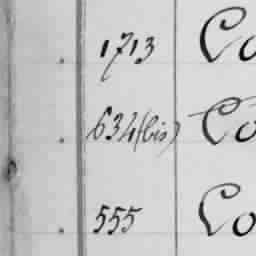 1713 Co
634(bis) Co
555 Co